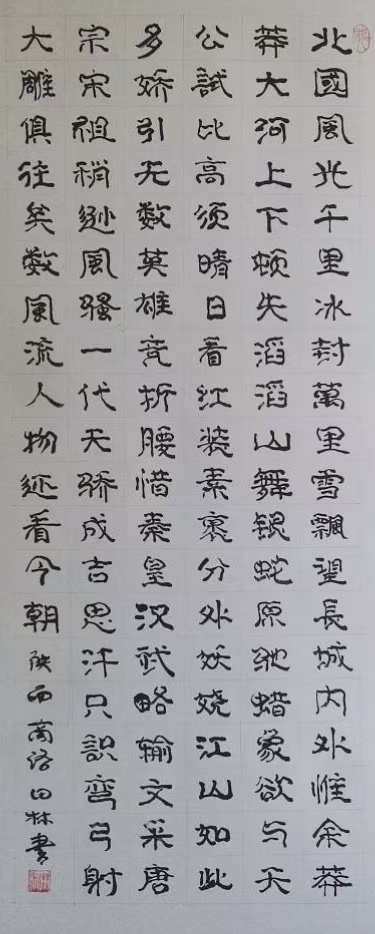 北國風光千里冰封萬里雪飄望長城内外惟余莽
莽大河上下顿失滔滔山舞银蛇原驰蜡象欲与天
公試比高须晴日看红装素裹分外妖娆江山如此
多娇引无数英雄竞折腰惜秦皇汉武略输文采唐
宗宋祖稍逊風骚一代天骄成吉思汗只識弯弓射
大雕俱往矣数風流人物还看今朝陕西商洛田林書